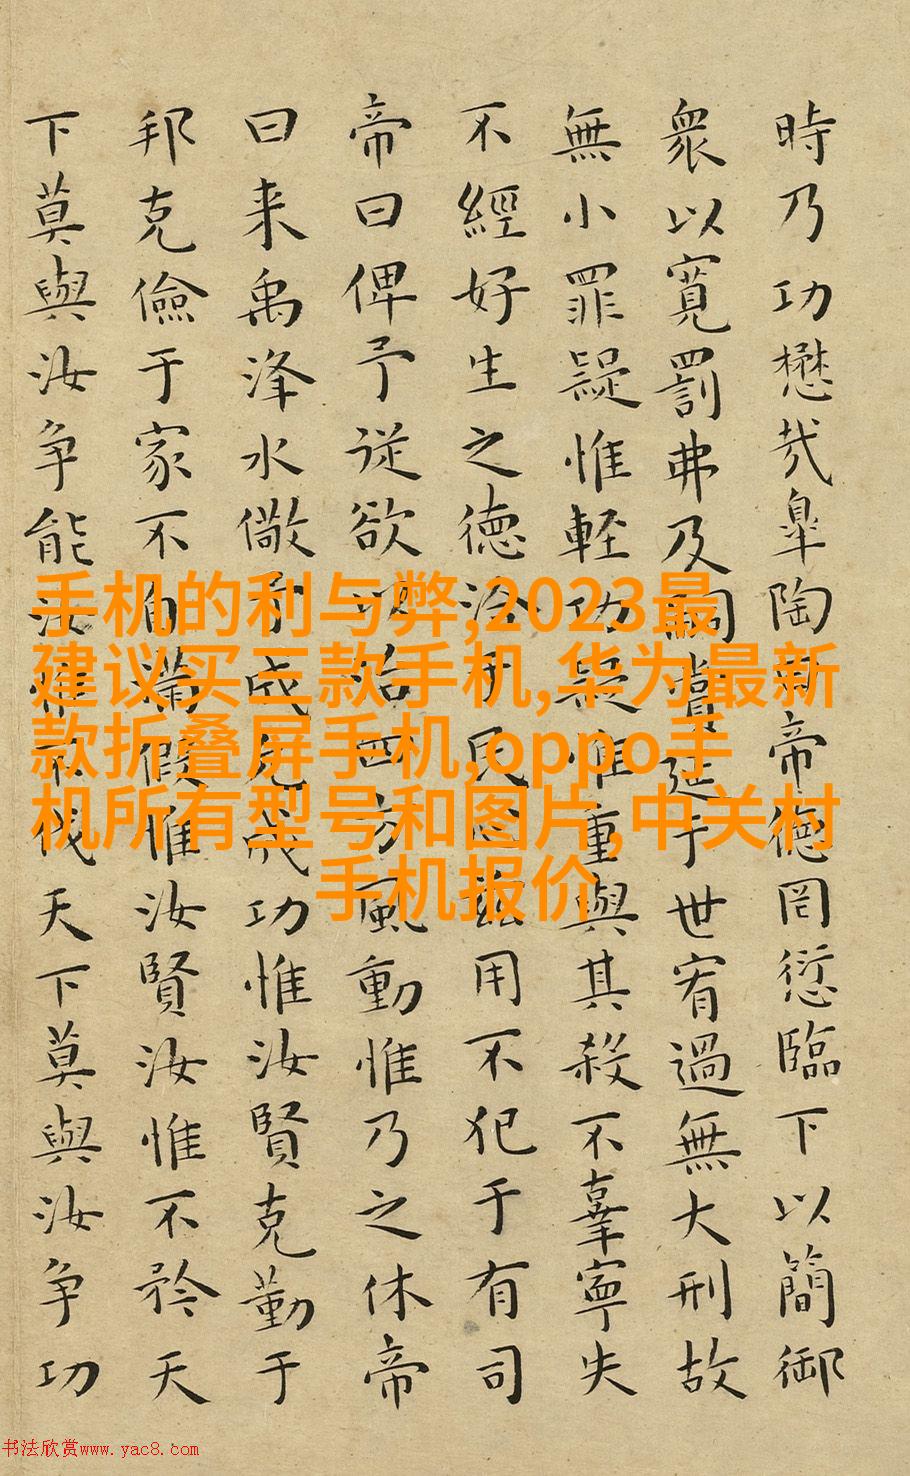 時乃功懋哉皐陶曰帝德罔愆臨下以簡御
衆以寬罰弗及嗣賞延于世宥過無大刑故
無小罪疑惟軽功疑惟重與其殺不辜寧失
不經好生之德洽于民心茲用不犯于有司
帝曰俾予従欲以治四方風動惟乃之休帝
曰来禹洚水儆予成允成功惟汝賢克勤于
邦克儉于家不自滿假惟汝賢汝惟不矜天
下莫與汝争能汝惟不伐天下莫與汝争功
手机的利与弊,2023最
建议买三款手机,华为最新
款折叠屏手机,oppo手
机所有型号和图片,中关村
手机报价
书法欣赏www.yac8.com